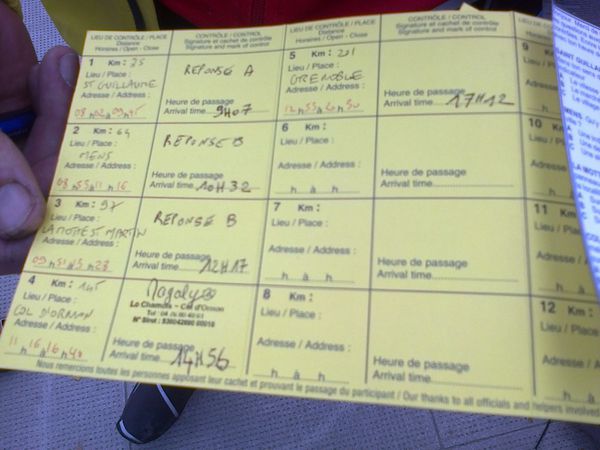 LIEU DE CONTRÔLE / PLACE
Distance
Horaires / Open - Close
CONTRÔLE / CONTROL
Signature et cachet de contrôle
Signature and mark of control
1 Km : 35
Lieu / Place :
ST GUILLAUME
Adresse / Address :
REPONSE A
Heure de passage
Arrival time 9H07
2 Km : 64
Lieu / Place :
MENS
Adresse / Address :
08 h 55 à 11 h 16
REPONSE B
Heure de passage
Arrival time 10H32
3 Km : 97
Lieu / Place :
LA MOTTE ST MARTIN
Adresse / Address :
REPONSE B
Heure de passage
Arrival time 12H17
4 Km : 145
Lieu / Place :
COL D'ORNON
Adresse / Address :
11 h 16 à 16 h 40
Magaly
Le Chamois - Col d'Ornon
Heure de passage
Arrival time 14H56
LIEU DE CONTRÔLE / PLACE
Distance
Horaires / Open - Close
CONTRÔLE / CONTROL
Signature et cachet de contrôle
Signature and mark of control
5 Km : 201
Lieu / Place :
GRENOBLE
Adresse / Address :
12 h 53 à 20 h 30
Heure de passage
Arrival time 17H12
6 Km :
Lieu / Place :
Adresse / Address :
h à h
Heure de passage
Arrival time
7 Km :
Lieu / Place :
Adresse / Address :
h à h
Heure de passage
Arrival time
8 Km :
Lieu / Place :
Adresse / Address :
h à h
Heure de passage
Arrival time
9
Lieu
10
Lieu
11
Lieu / P
Adresse /
12 K
Lieu / Pla
Adresse / A
Nous remercions toutes les personnes apposant leur cachet et prouvant le passage du participant / Our thanks to all officials and helpers involved